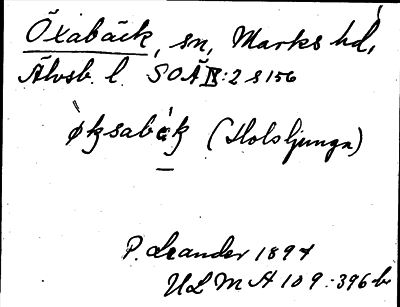 Öxabäck, sn, Marks hd,
Älvsb. l. SOÄ IX:2 s 156
(Holsljunga)
P. Leander 1897
ULMA 109:396 b